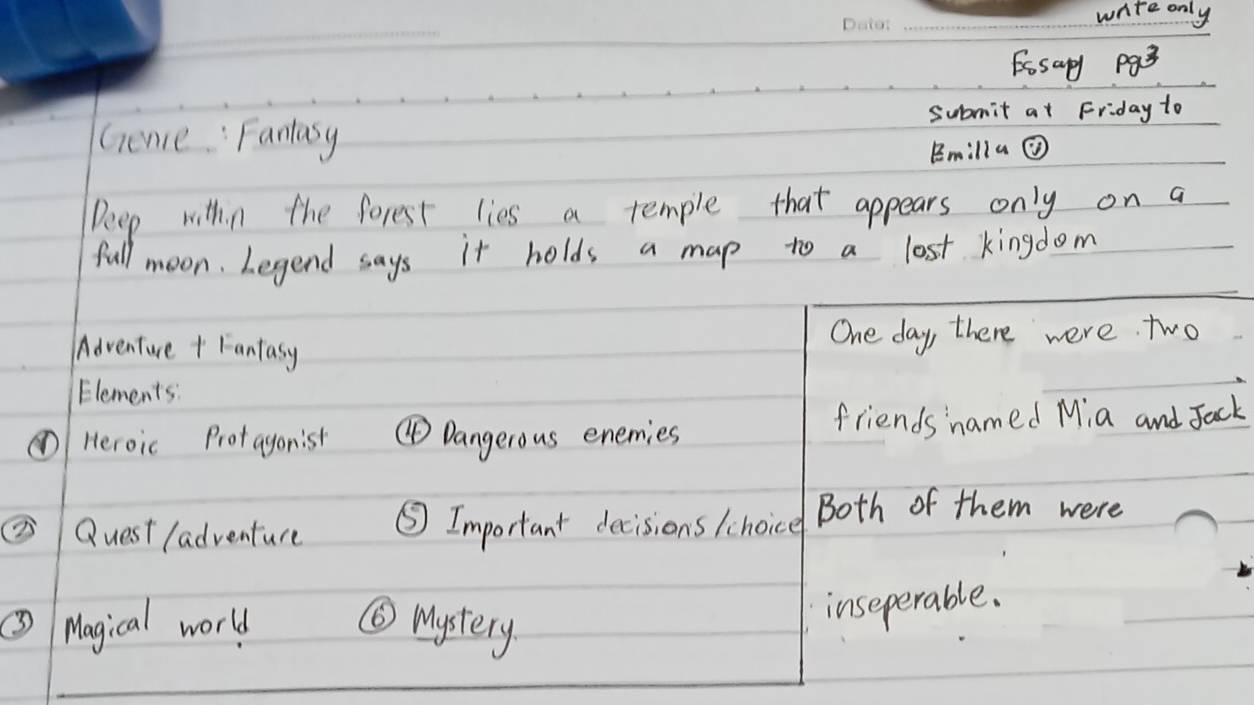 Date:
write only
Essay pg3
Submit at Friday to
Emilla
Genre : Fantasy
Deep within the forest lies a temple that appears only on a
full moon. Legend says it holds a map to a lost kingdom
Adventure + Fantasy
Elements:
① Heroic Protagonist ④ Dangerous enemies
② Quest/adventure ⑤ Important decisions/choice
③ Magical world ⑥ Mystery.
One day, there were two
friends named Mia and Jack
Both of them were
inseperable.